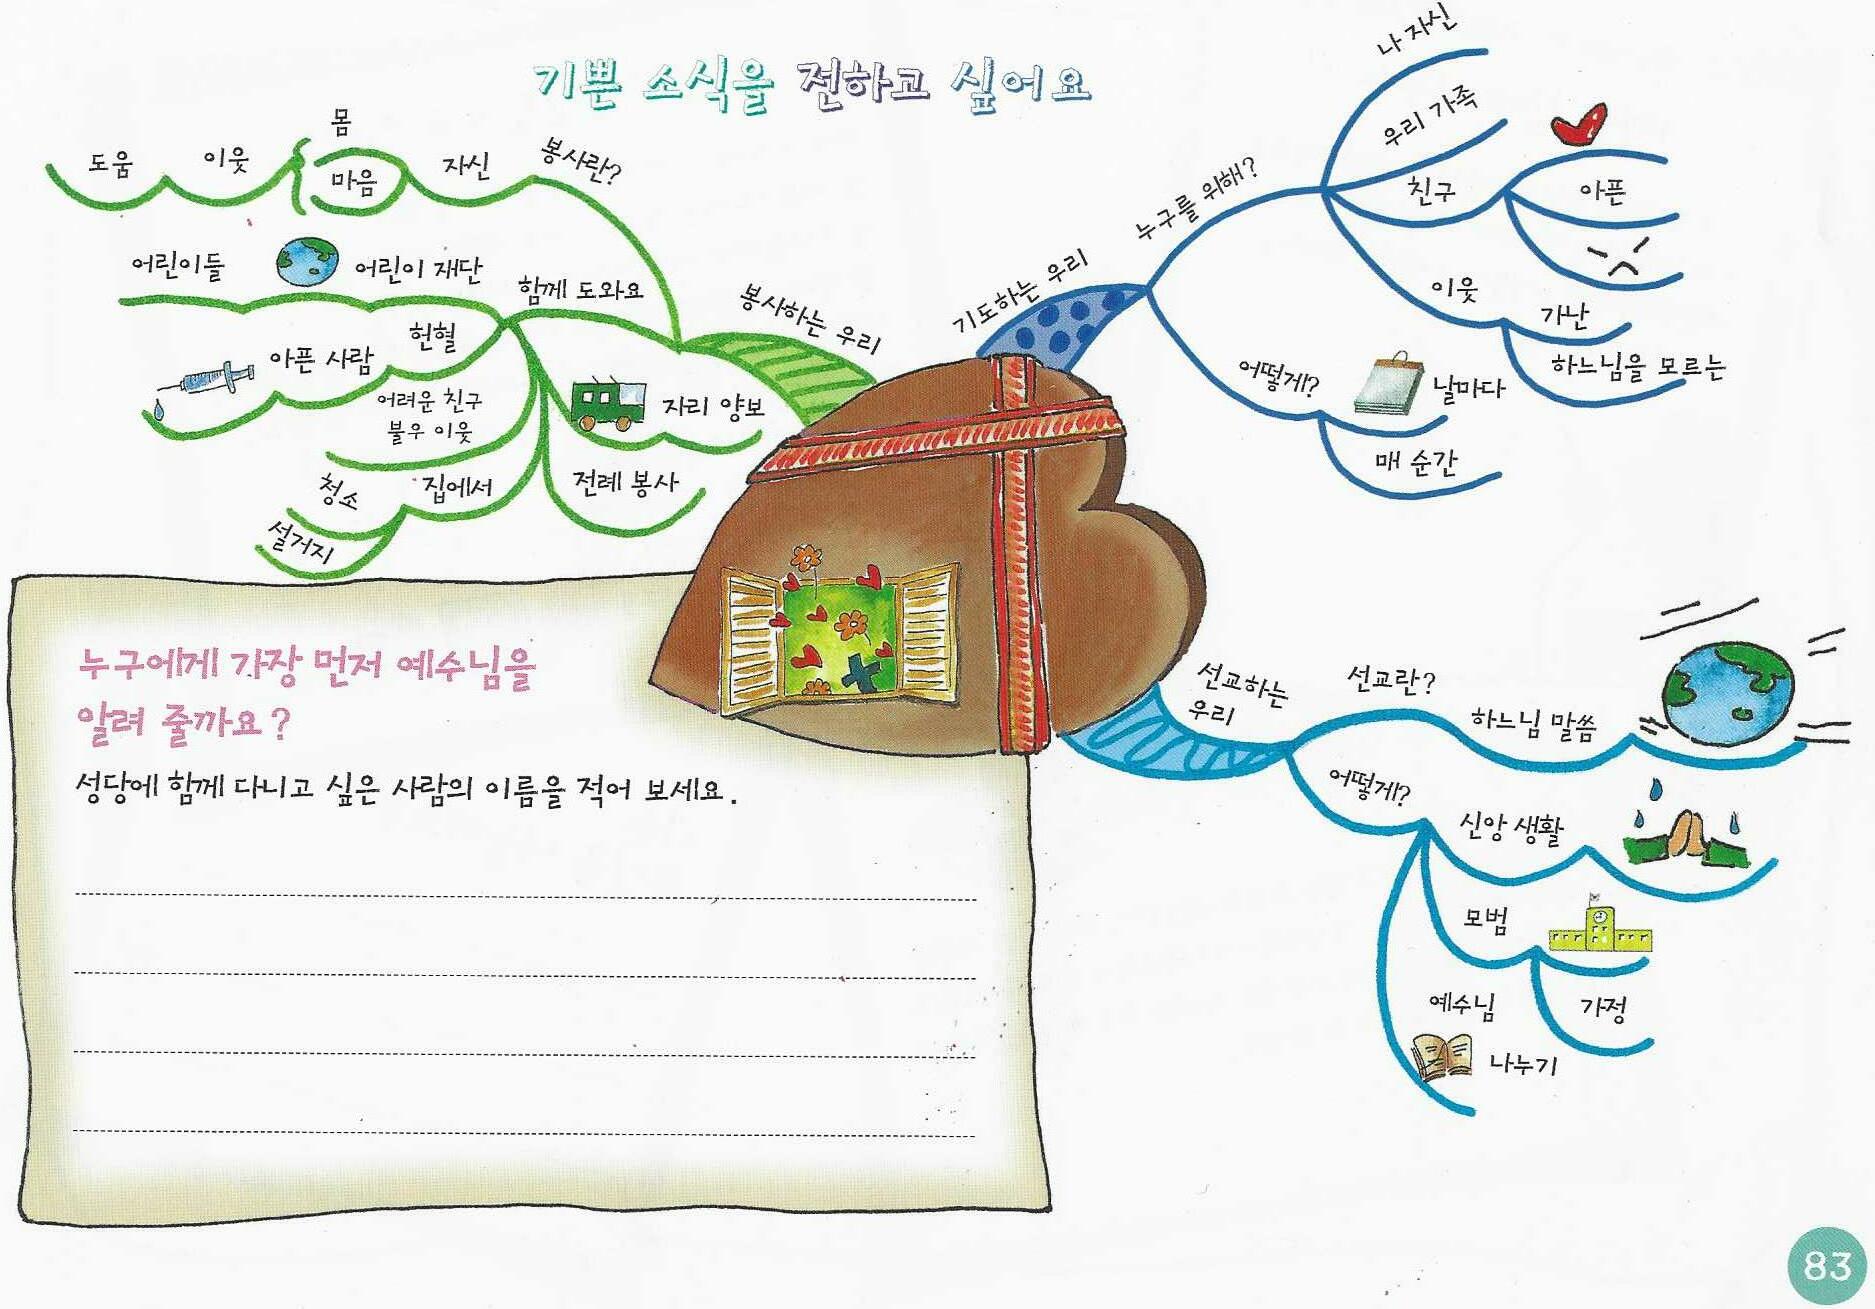 기쁜 소식을 전하고 싶어요
봉사하는 우리
봉사란?
자신
몸
마음
이웃
도움
함께 도와요
어린이 재단
어린이들
헌혈
아픈 사람
어려운 친구
불우 이웃
집에서
청소
설거지
자리 양보
전례 봉사
기도하는 우리
누구를 위해?
나 자신
우리 가족
친구
아픈
이웃
가난
하느님을 모르는
어떻게?
날마다
매 순간
선교하는
우리
선교란?
하느님 말씀
어떻게?
신앙 생활
모범
가정
예수님
나누기
누구에게 가장 먼저 예수님을
알려 줄까요?
성당에 함께 다니고 싶은 사람의 이름을 적어 보세요.
83